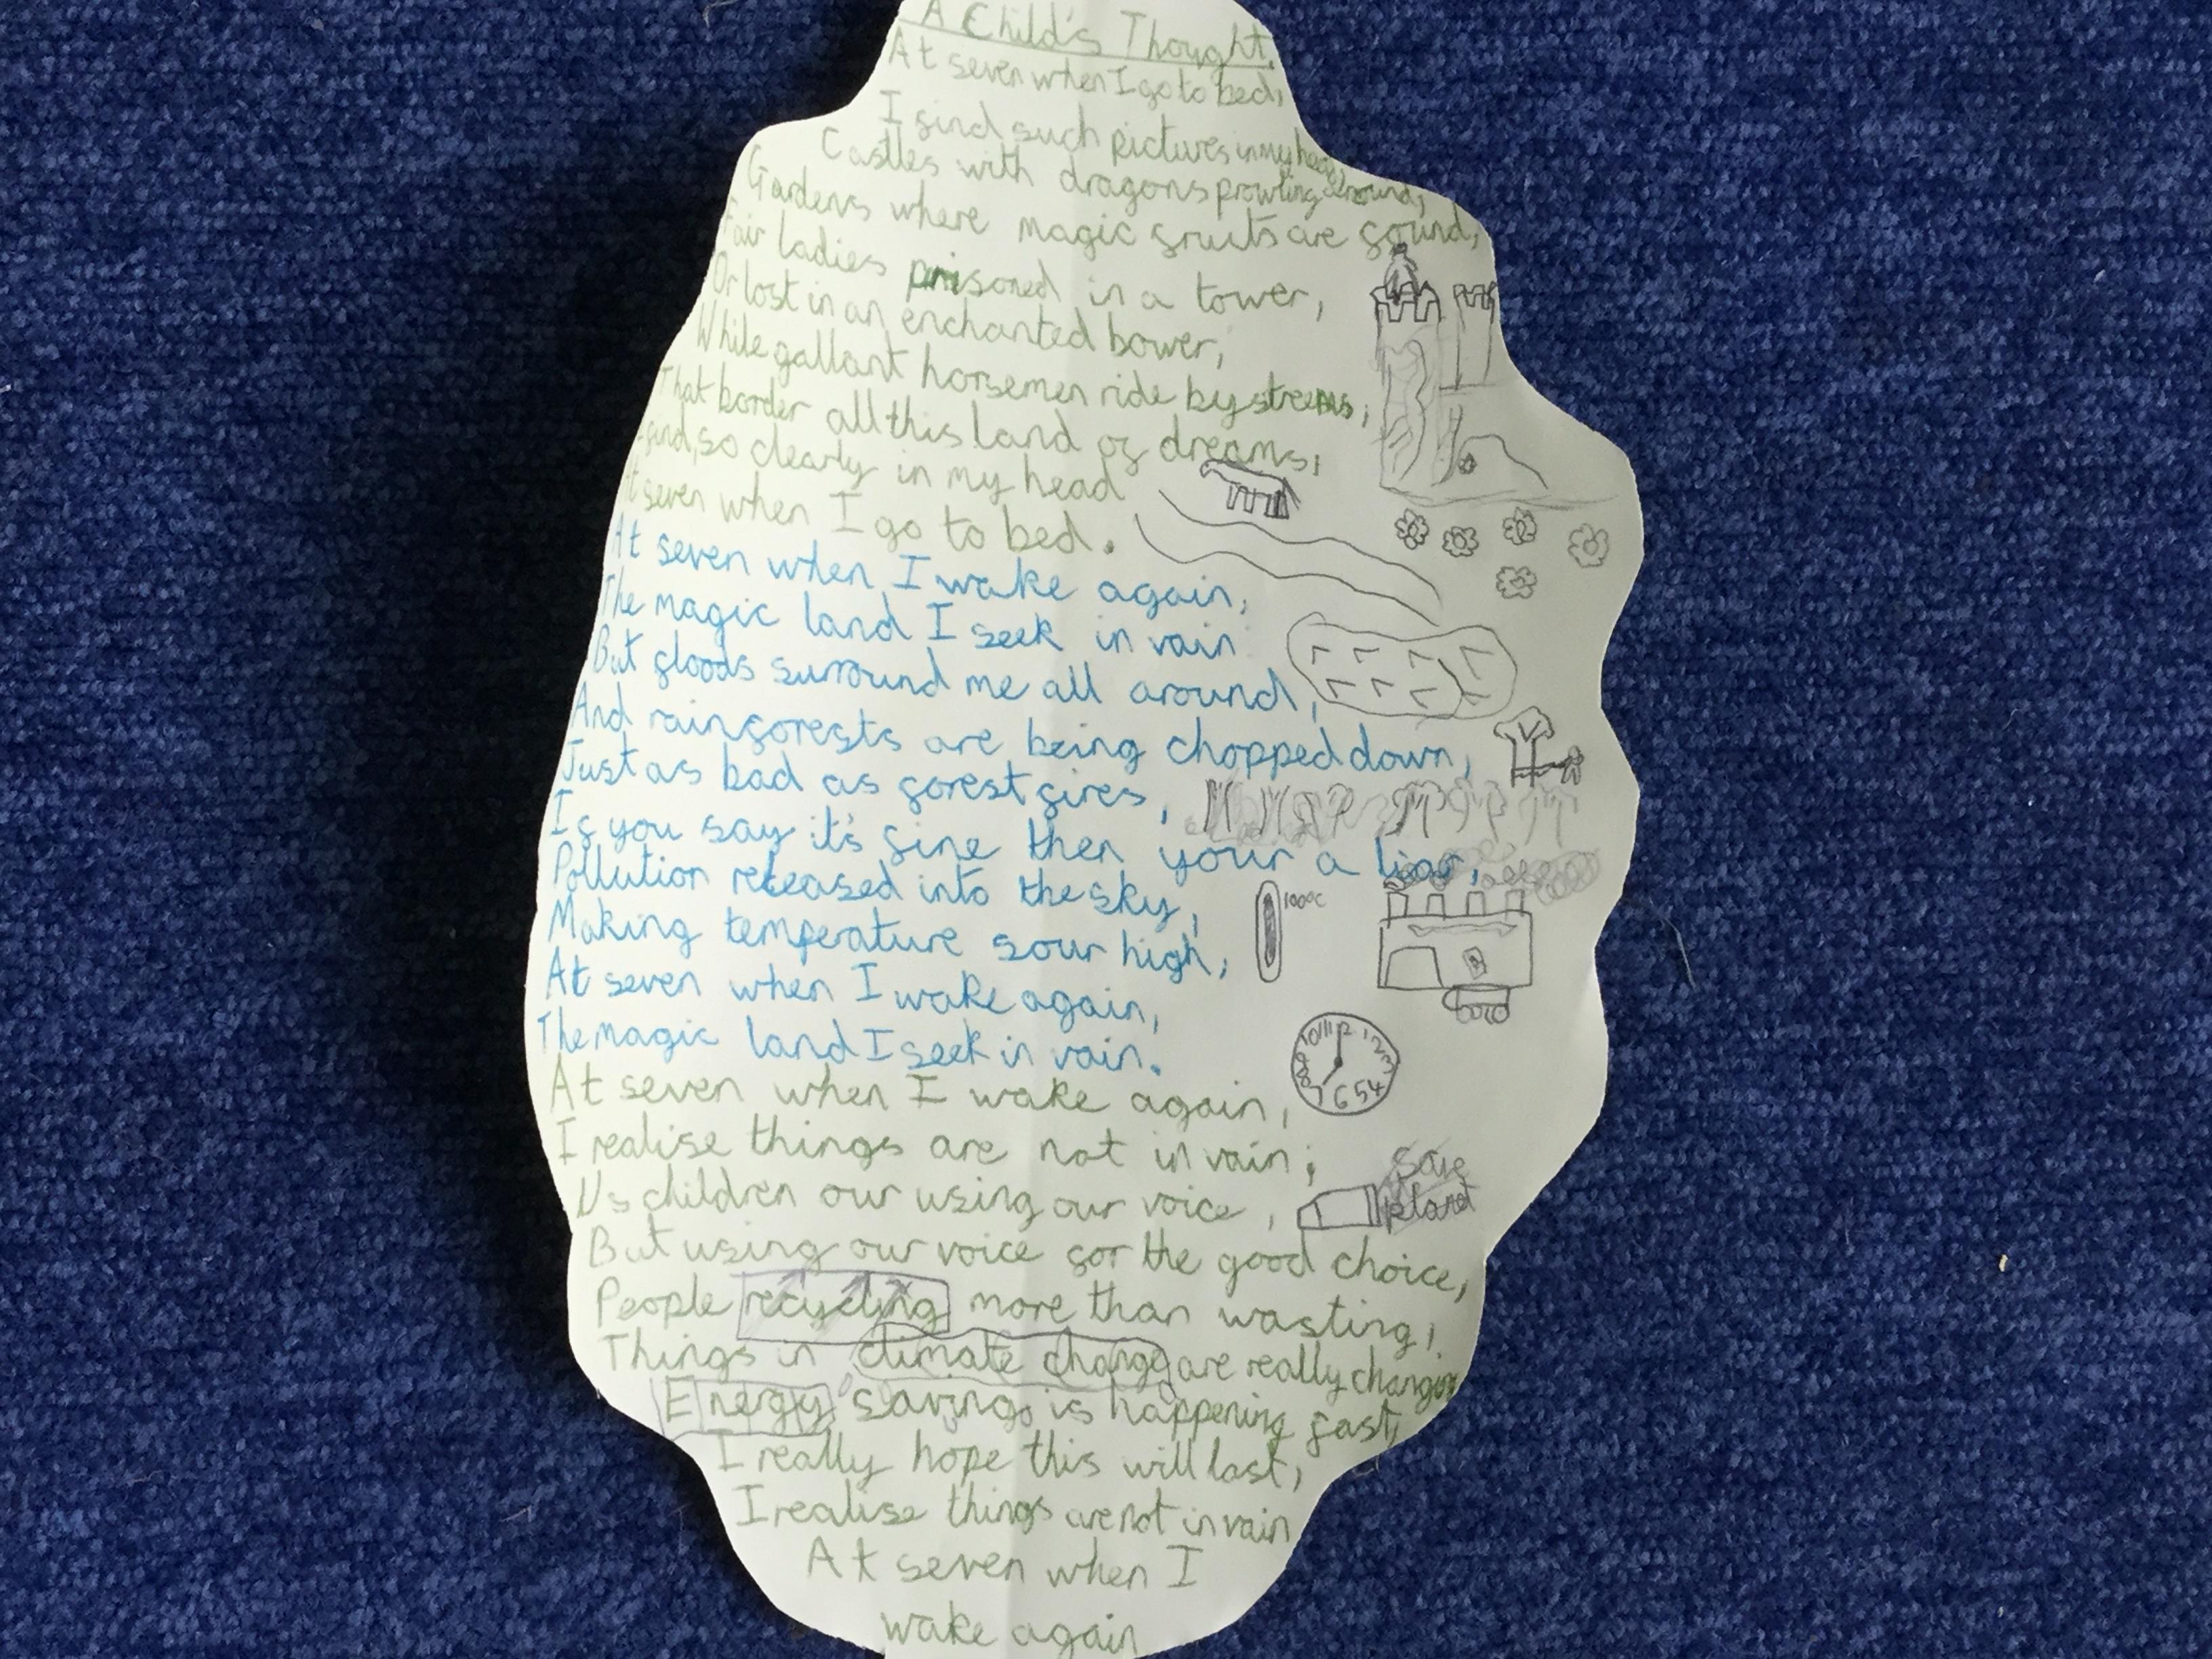 A Child's Thought.
At seven when I go to bed,
I find such pictures in my head,
Castles with dragons prowling around,
Gardens where magic fruits are found,
Fair ladies prisoned in a tower,
Or lost in an enchanted bower,
While gallant horsemen ride by streams,
That border all this land of dreams,
I find, so clearly in my head
At seven when I go to bed.
At seven when I wake again,
The magic land I seek in vain
But floods surround me all around,
And rainforests are being chopped down,
Just as bad as forest fires,
If you say it's fine then your a liar,
Pollution released into the sky,
Making temperature sour high,
100°C
At seven when I wake again,
The magic land I seek in vain.
10 11 12 1 2 3 4 5 6 7 8 9
At seven when I wake again,
I realise things are not in vain;
Us children our using our voice,
Save
planet
But using our voice for the good choice,
People recycling more than wasting,
Things in climate change are really changing
Energy saving is happening fast,
I really hope this will last,
I realise things are not in vain
At seven when I
wake again